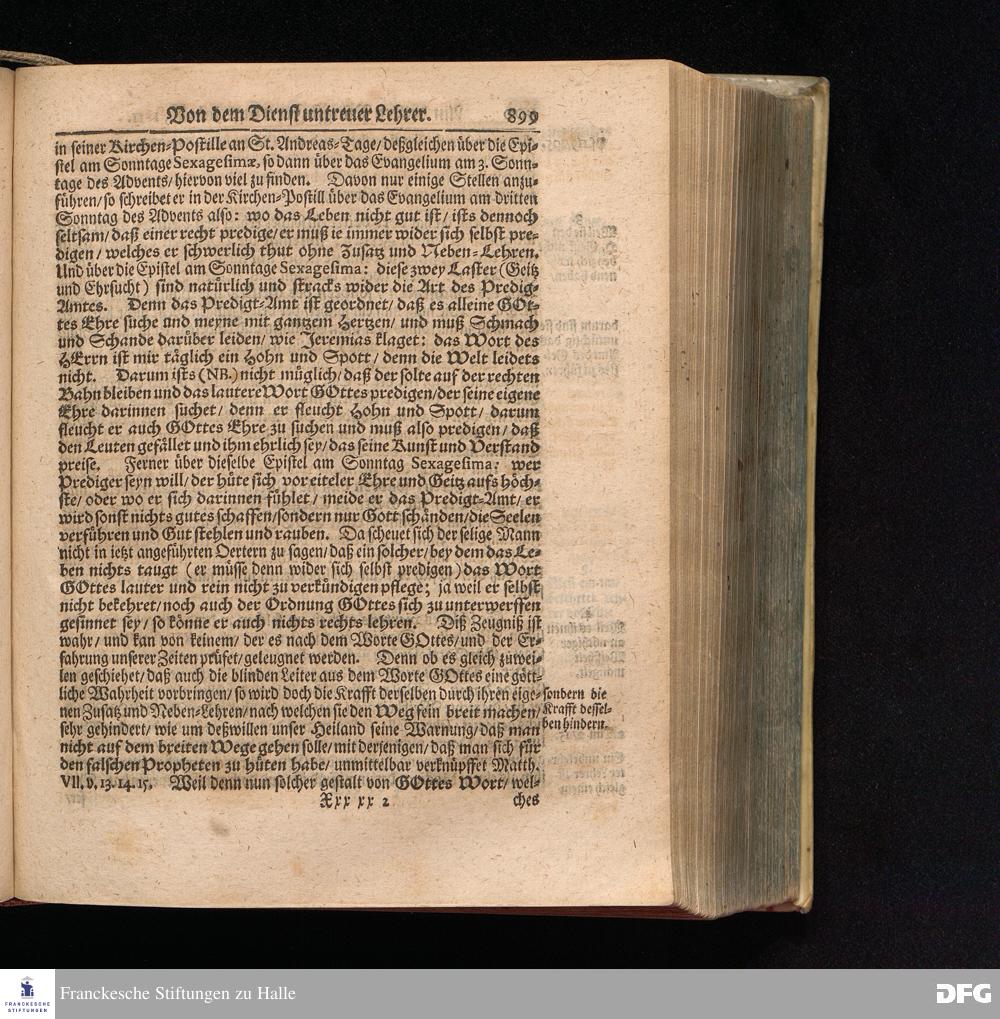 Von dem Dienst untreuer Lehrer. 899
in seiner Kirchen-Postille an St. Andreas-Tage/ deßgleichen über die Epi-
stel am Sonntage Sexagesimæ, so dann über das Evangelium am 3. Sonn-
tage des Advents/ hiervon viel zu finden. Davon nur einige Stellen anzu-
führen/ so schreibet er in der Kirchen-Postill über das Evangelium am dritten
Sonntag des Advents also: wo das Leben nicht gut ist/ ists dennoch
seltsam/ daß einer recht predige/ er muß ie immer wider sich selbst pre-
digen/ welches er schwerlich thut ohne Zusatz und Neben-Lehren.
Und über die Epistel am Sonntage Sexagesima: diese zwey Laster (Geitz
und Ehrsucht) sind natürlich und stracks wider die Art des Predig-
Amtes. Denn das Predigt-Amt ist geordnet/ daß es alleine GOt-
tes Ehre suche und meyne mit gantzem Hertzen/ und muß Schmach
und Schande darüber leiden/ wie Jeremias klaget: das Wort des
HErrn ist mir täglich ein Hohn und Spott/ denn die Welt leidets
nicht. Darum ists (NB.) nicht müglich/ daß der solte auf der rechten
Bahn bleiben und das lautere Wort GOttes predigen/ der seine eigene
Ehre darinnen suchet/ denn er fleucht Hohn und Spott/ darum
fleucht er auch GOttes Ehre zu suchen und muß also predigen/ daß
den Leuten gefället und ihm ehrlich sey/ das seine Kunst und Verstand
preise. Ferner über dieselbe Epistel am Sonntag Sexagesima: wer
Prediger seyn will/ der hüte sich vor eiteler Ehre und Geitz aufs höch-
ste/ oder wo er sich darinnen fühlet/ meide er das Predigt-Amt/ er
wird sonst nichts gutes schaffen/ sondern nur Gott schänden/ die Seelen
verführen und Gut stehlen und rauben. Da scheuet sich der selige Mann
nicht in ietzt angeführten Oertern zu sagen/ daß ein solcher/ bey dem das Le-
ben nichts taugt (er müsse denn wider sich selbst predigen) das Wort
GOttes lauter und rein nicht zu verkündigen pflege; ja weil er selbst
nicht bekehret/ noch auch der Ordnung GOttes sich zu unterwerffen
gesinnet sey/ so könne er auch nichts rechts lehren. Diß Zeugniß ist
wahr/ und kan von keinem/ der es nach dem Worte GOttes/ und der Er-
fahrung unserer Zeiten prüfet/ geleugnet werden. Denn ob es gleich zuwei-
len geschiehet/ daß auch die blinden Leiter aus dem Worte GOttes eine gött-
liche Wahrheit vorbringen/ so wird doch die Krafft derselben durch ihren eige-
nen Zusatz und Neben-Lehren/ nach welchen sie den Weg fein breit machen/
sehr gehindert/ wie um deßwillen unser Heiland seine Warnung/ daß man
nicht auf dem breiten Wege gehen solle/ mit derjenigen/ daß man sich für
den falschen Propheten zu hüten habe/ unmittelbar verknüpffet Matth.
VII. v. 13. 14. 15. Weil denn nun solcher gestalt von GOttes Wort/ wel-
Xxx xx 2 ches
sondern die
Krafft dessel-
ben hindern.
FRANCKESCHE
STIFTUNGEN
Franckesche Stiftungen zu Halle
DFG